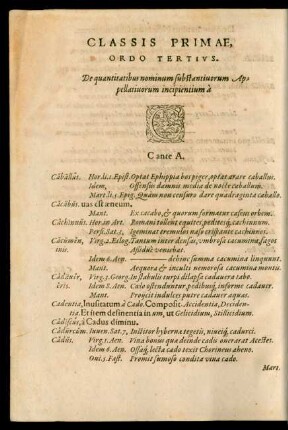 CLASSIS PRIMAE,
ORDO TERTIVS.
De quantitatibus nominum substantiuorum Ap-
pellatiuorum incipientium à
C
C ante A.
Căballŭs. Hor. li. 1. Epist. Optat Ephippia bos piger, optat arare caballus.
Idem, Offensus damnis media de nocte caballum.
Mart. li. 1. Epig. Quàm non censura dare quadraginta caballo.
Cacăbŭs. uas est æneum.
Mant. Ex cacabo, & quorum formatur cassis orbem.
Căchinnŭs. Hor. in Art. Romani tollent equites, peditesq; cachinnum.
Persi. Sat. 3. Ingeminat tremulos naso crispante cachinnos.
Căcūmĕn, Virg. 2. Eclog. Tantum inter densas, umbrosa cacumina, fagos
inis. Assiduè veniebat.
Idem 6. Aen. dehinc summa cacumina linquunt.
Mant. Aequora & inculti nemorosa cacumina montis.
Virg. 3. Georg. In stabulis turpi dilapsa cadauera tabo.
ĕris. Idem 8. Aen. pedibusq; informe cadauer.
Mant. Proijcit indulces putre cadauer aquas.
Cadentia, Inusitatum à Cado. Composit. Accidentia, Deciden-
tia. Et sem desinentia in um, ut Gelicidium, Stillicidium.
à Cadus diminu.
Cādurcum. Iuuen. Sat. 7, Institor hybernæ tegetis, niueiq; cadurci.
Cădŭs. Virg. 1. Aen. Vina bonus quæ deinde cadis onerarat Acestes.
Idem 6. Aen. Ossaq; lecta cado texit Chorineus aheno.
Oui. 5. Fast. Promit fumoso condita vina cado.
Mart.